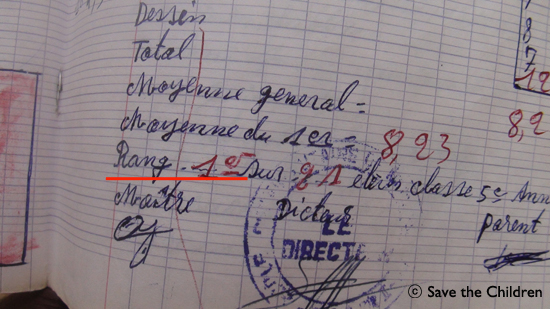 Dessin
Total
Moyenne general =
Moyenne du 1er = 8,23
Rang - 1er sur 21 élèves classe 5e Ann
Maître Dicteur parent
LE
DIRECTE
8
7
12
8,2
© Save the Children